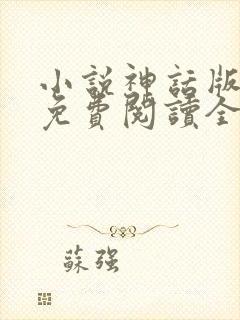 小說神話版
免費閱讀全
蘇強